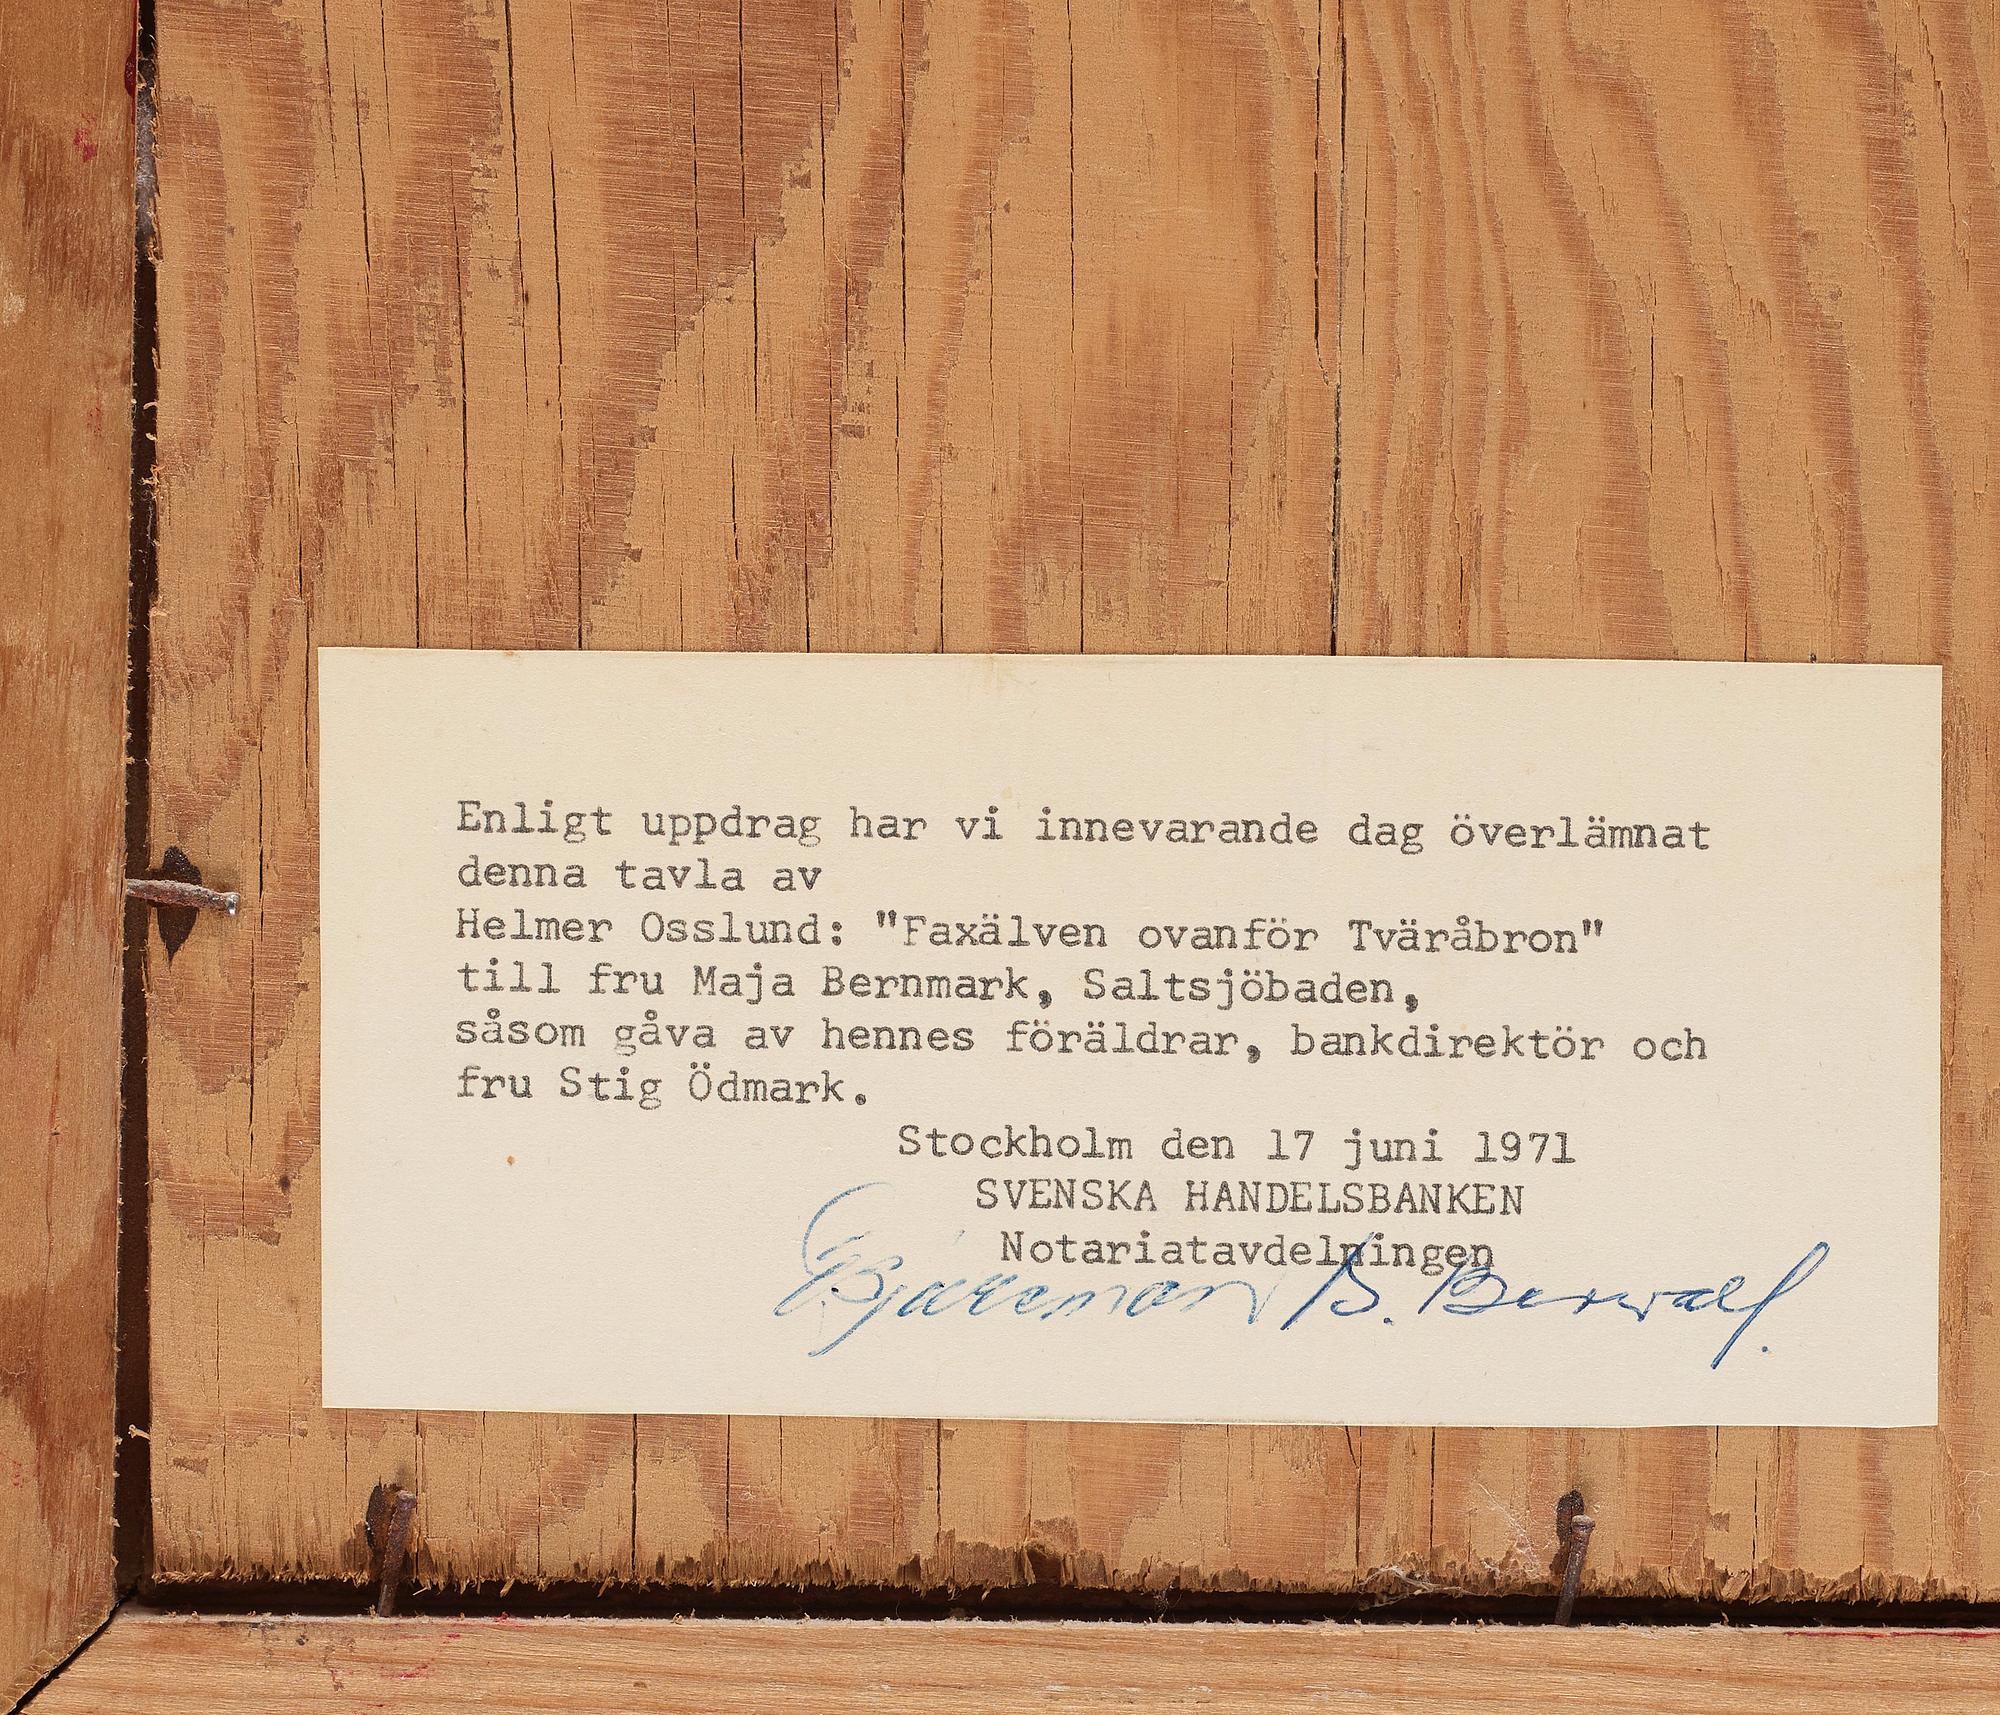 Enligt uppdrag har vi innevarande dag överlämnat
denna tavla av
Helmer Osslund: "Faxälven ovanför Tväråbron"
till fru Maja Bernmark, Saltsjöbaden,
såsom gåva av hennes föräldrar, bankdirektör och
fru Stig Ödmark.
Stockholm den 17 juni 1971
SVENSKA HANDELSBANKEN
Notariatavdelningen
B.